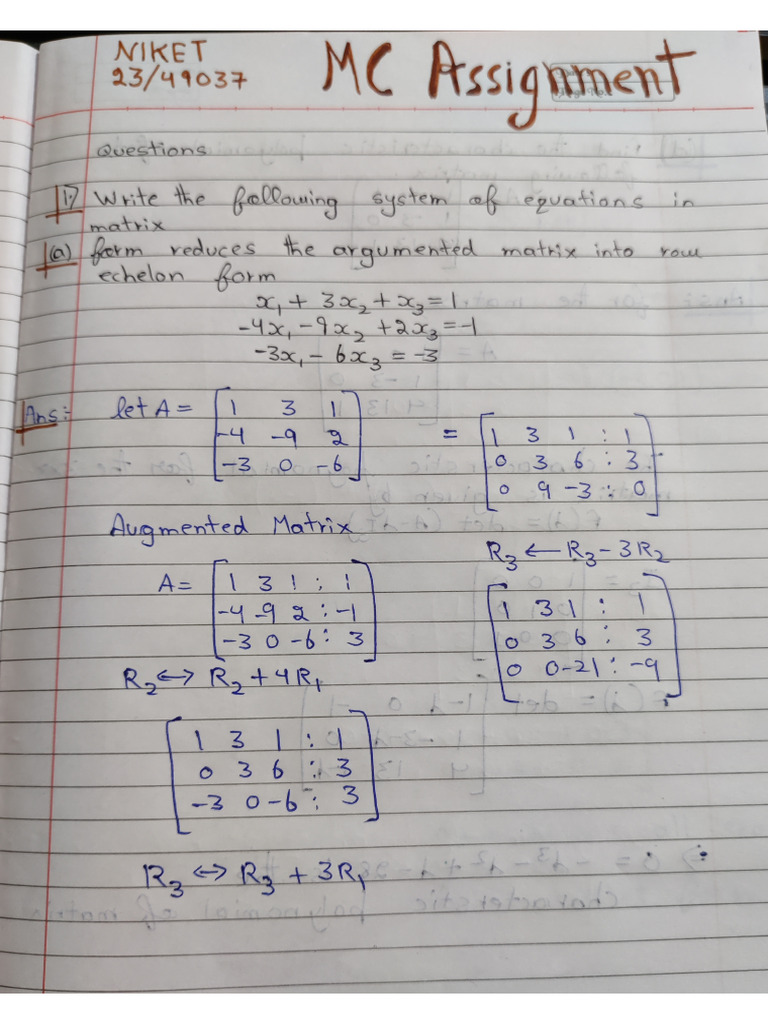 NIKET
23/49037
MC Assignment
Questions
1) Write the following system of equations in
matrix
(a) form reduces the argumented matrix into row
echelon form
x₁ + 3x₂ + x₃ = 1
-4x₁ - 9x₂ + 2x₃ = -1
-3x₁ - 6x₃ = -3
Ans: let A = [1 3 1
-4 -9 2
-3 0 -6]
Augmented Matrix
A = [1 3 1 : 1
-4 -9 2 : -1
-3 0 -6 : 3]
R₂ ↔ R₂ + 4R₁
[1 3 1 : 1
0 3 6 : 3
-3 0 -6 : 3]
R₃ ↔ R₃ + 3R₁
= [1 3 1 : 1
0 3 6 : 3
0 9 -3 : 0]
R₃ ← R₃ - 3R₂
[1 3 1 : 1
0 3 6 : 3
0 0 -21 : -9]